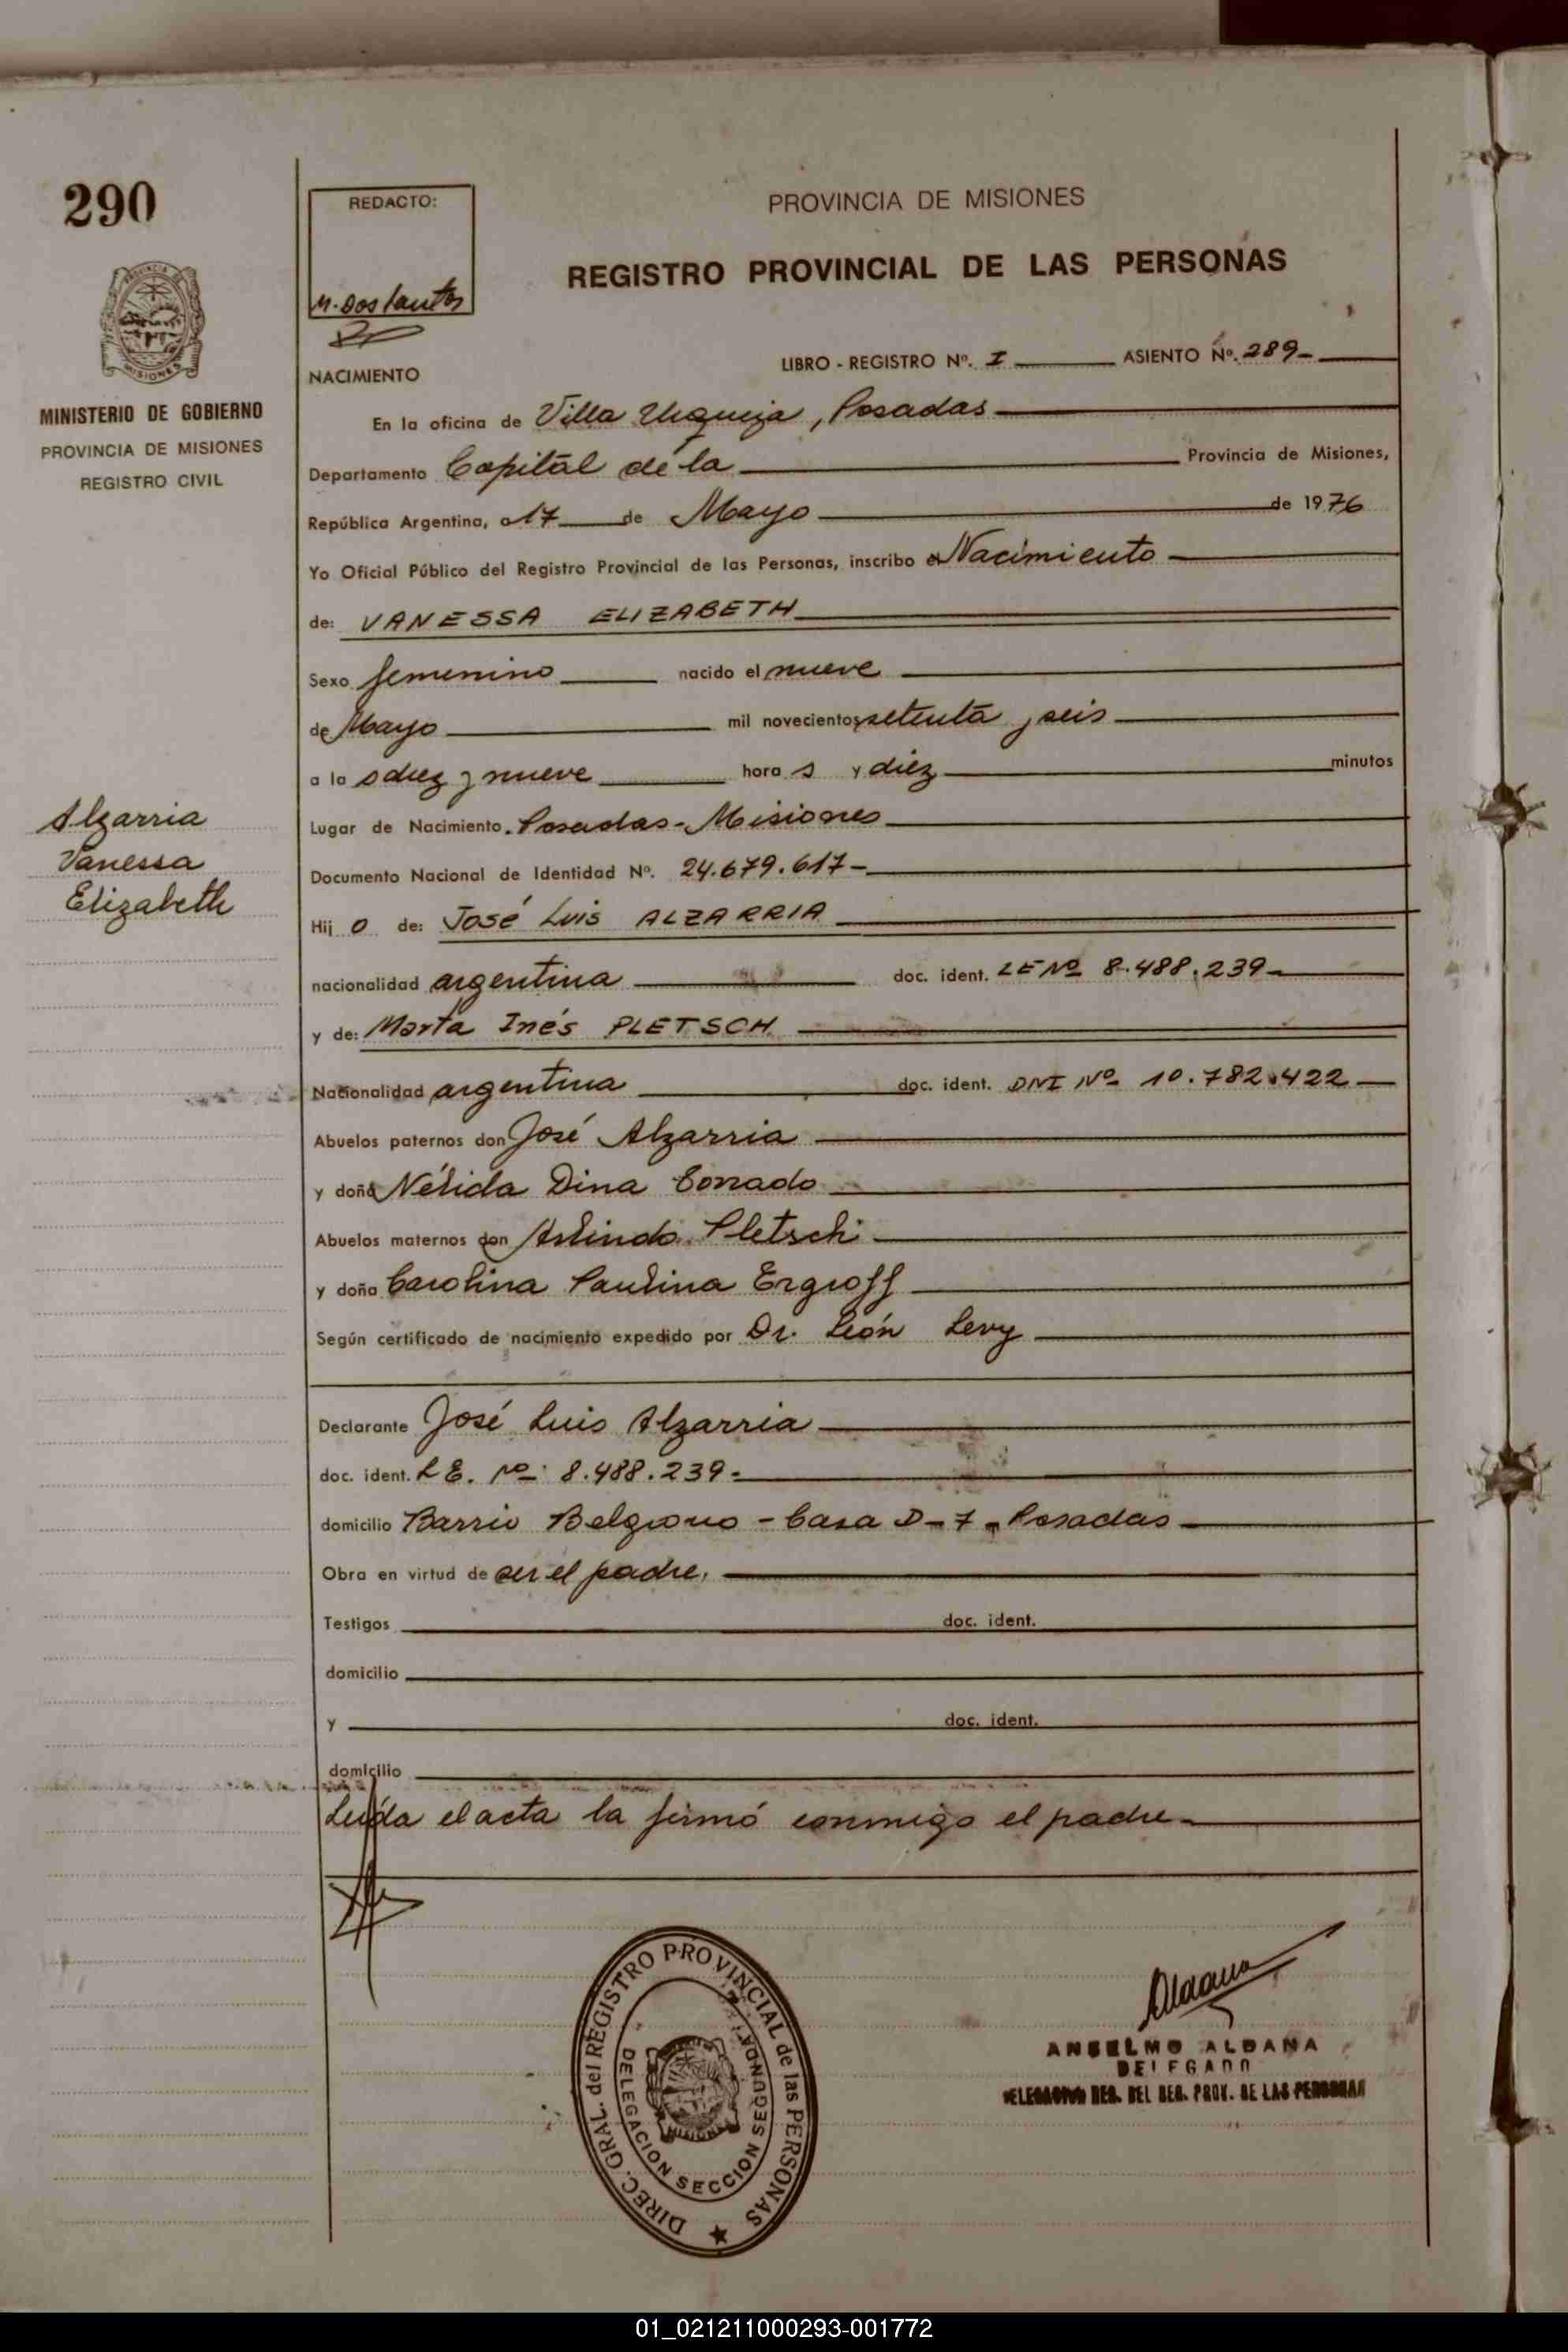 290
REDACTO:
M. Dos Santos
PROVINCIA DE MISIONES
REGISTRO PROVINCIAL DE LAS PERSONAS
LIBRO - REGISTRO Nº. I ASIENTO Nº. 289-
NACIMIENTO
MISIONES
MINISTERIO DE GOBIERNO
PROVINCIA DE MISIONES
REGISTRO CIVIL
En la oficina de Villa Urquiza, Posadas
Departamento Capital de la Provincia de Misiones,
República Argentina, a 17 de Mayo de 1976
Yo Oficial Público del Registro Provincial de las Personas, inscribo el Nacimiento
de: VANESSA ELIZABETH
Sexo femenino nacido el nueve
de Mayo mil novecientos setenta y seis
a la s diez y nueve hora s y diez minutos
Alzarria
Vanessa
Elizabeth
Lugar de Nacimiento. Posadas - Misiones
Documento Nacional de Identidad Nº. 24.679.617-
Hij o de: José Luis ALZARRIA
nacionalidad argentina doc. ident. LE Nº 8.488.239-
y de: Marta Inés PLETSCH
Nacionalidad argentina doc. ident. DNI Nº 10.782.422
Abuelos paternos don José Alzarria
y doña Nélida Dina
Abuelos maternos don Arlindo Pletsch
y doña Carolina Paulina Ergroff
Según certificado de nacimiento expedido por Dr. León Levy
Declarante José Luis Alzarria
doc. ident. LE. Nº 8.488.239-
domicilio Barrio Belgrano - Casa D-7- Posadas
Obra en virtud de ser el padre.
Testigos doc. ident.
domicilio
y doc. ident.
domicilio
Leída el acta la firmó conmigo el padre-
DIREC. GRAL. del REGISTRO PROVINCIAL de las PERSONAS
DELEGACION SECCION SEGUNDA
MISIONES
Aldana
ANSELMO ALDANA
DELEGADO
DELEGACION SEG. DEL REG. PROV. DE LAS PERSONAS
01_021211000293-001772